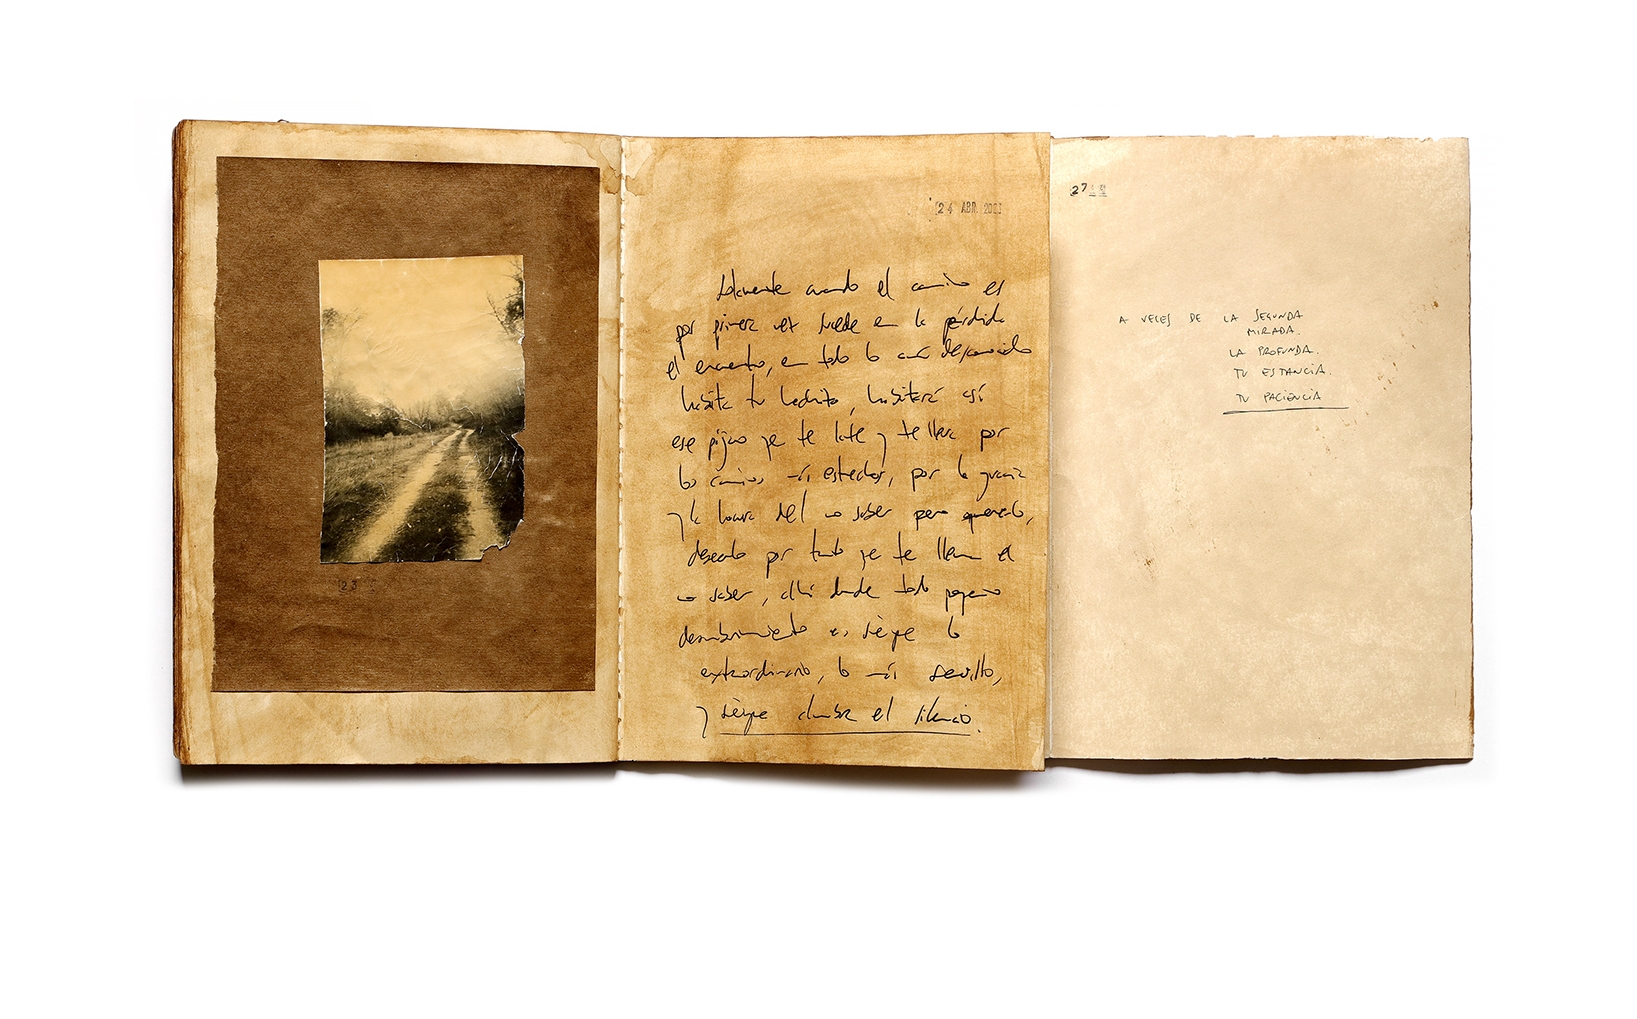 23
24 ABR. 2003
Solamente cuando el camino es
por primera vez sucede en la pérdida
el encuentro, en todo lo aún desconocido
habita tu latido, habitará así
ese pájaro que te late y te lleva por
los caminos más estrechos, por la gracia
y la locura del no saber pero quererlo,
desearlo por tanto que te llena el
no saber, allí donde todo pequeño
descubrimiento es siempre lo
extraordinario, lo más sencillo,
y siempre alumbra el silencio.
27
A VECES DE LA SEGUNDA
MIRADA.
LA PROFUNDA.
TU ESTANCIA.
TU PACIENCIA